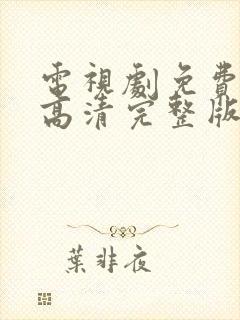 電視劇免費
高清完整版
葉非夜